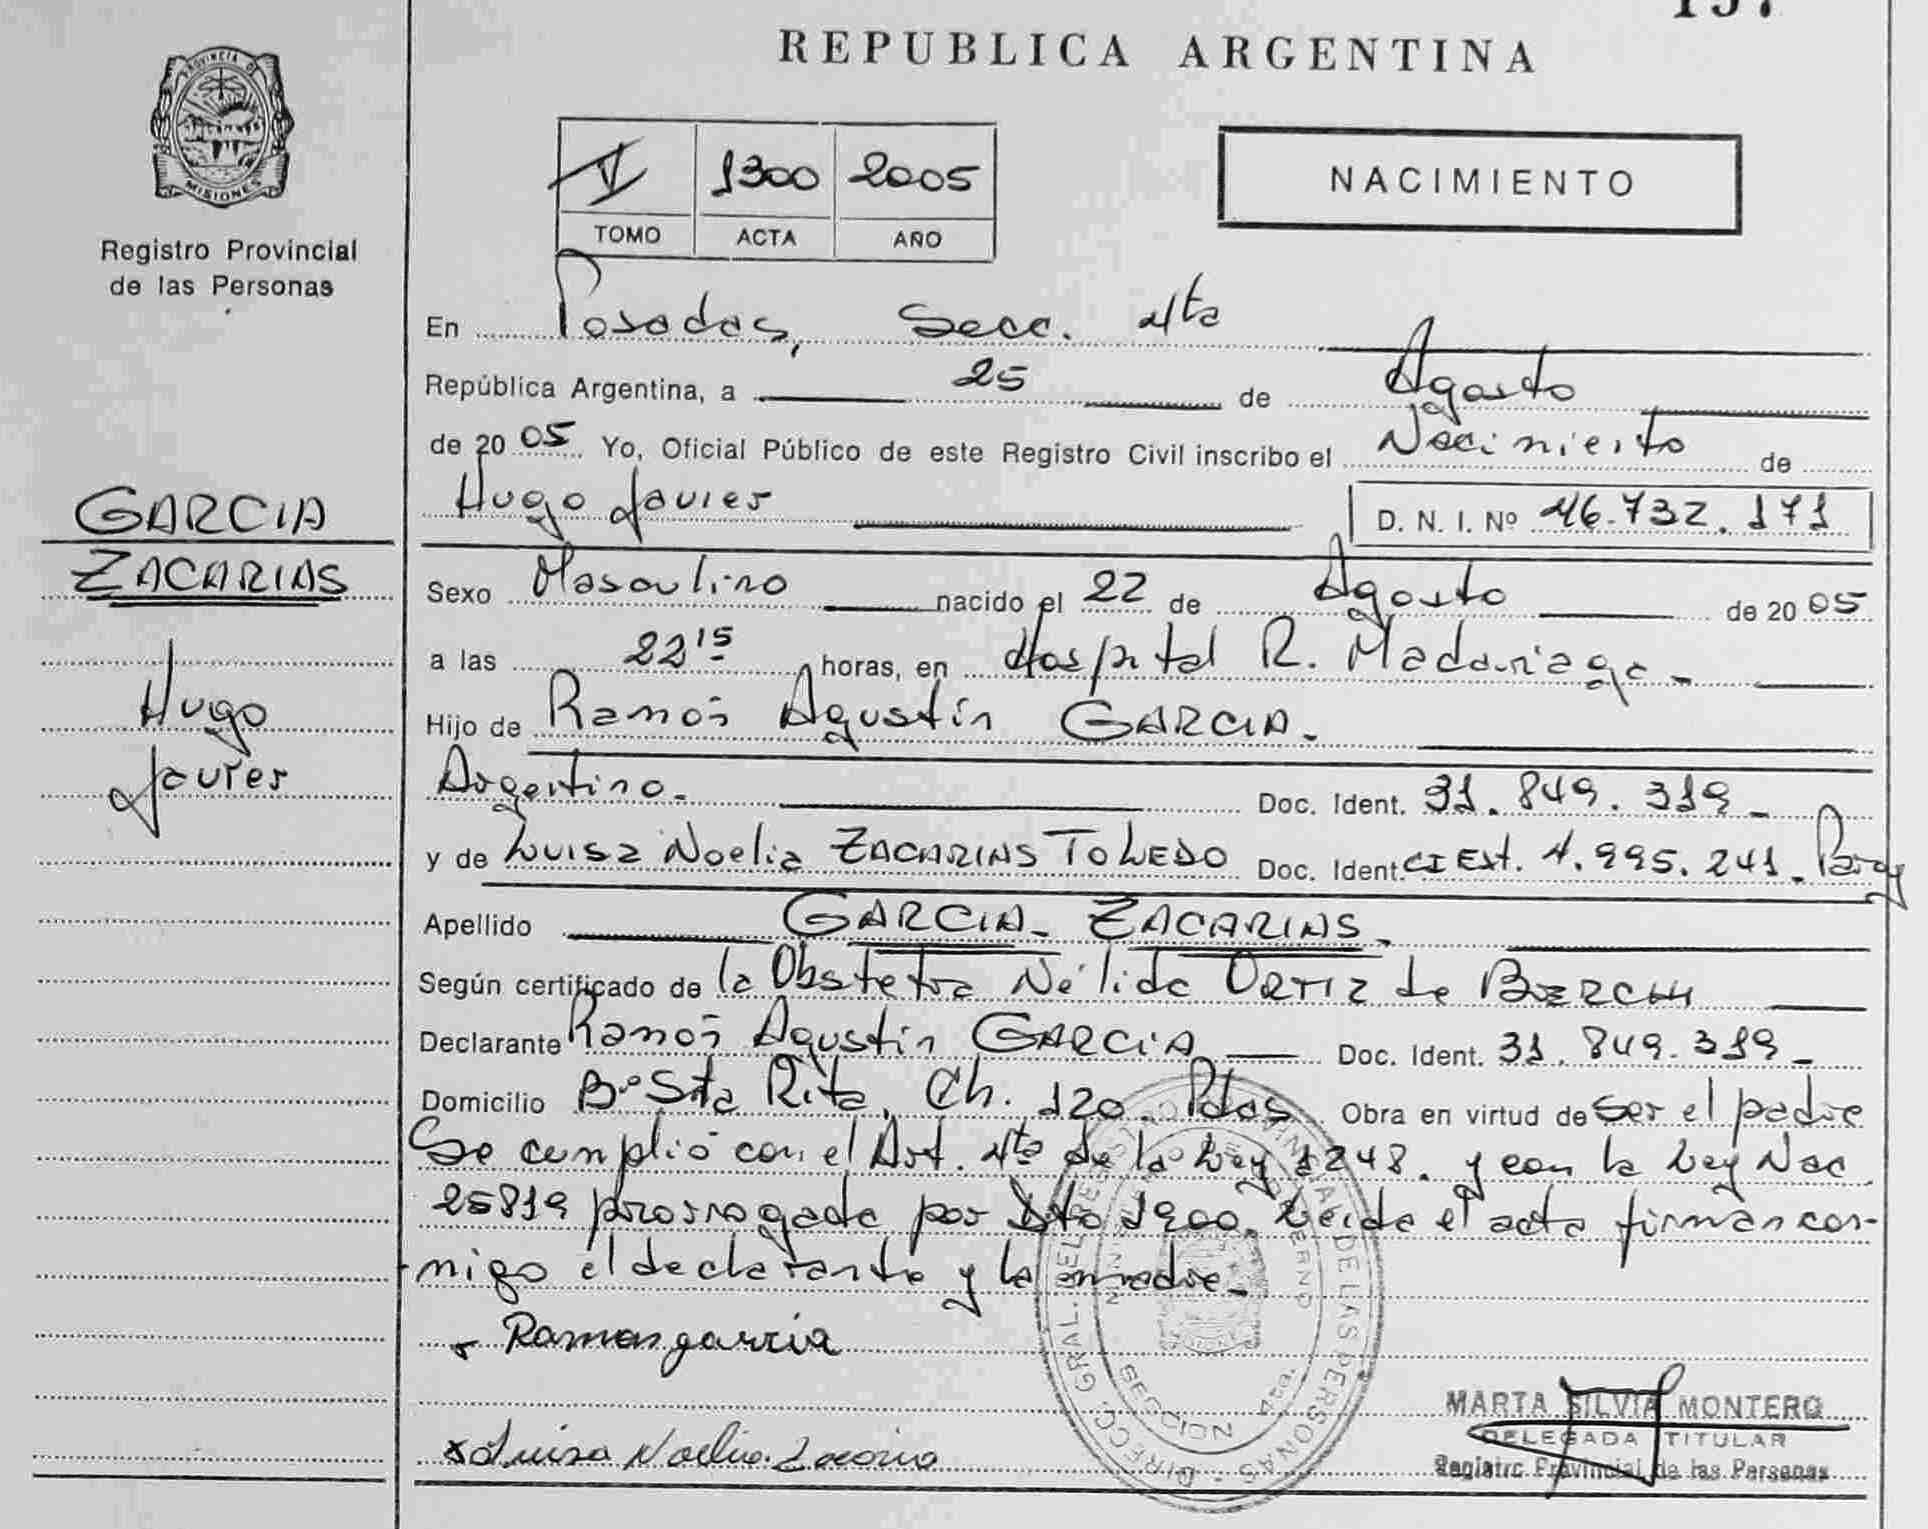 REPUBLICA ARGENTINA
PROVINCIA DE
MISIONES
Registro Provincial
de las Personas
V 1300 2005
TOMO ACTA AÑO
NACIMIENTO
En Posadas, Secc. 4ta
República Argentina, a 25 de Agosto
de 2005 Yo, Oficial Público de este Registro Civil inscribo el Nacimiento de
Hugo Javier D. N. I. Nº 46.732.171
GARCIA
ZACARIAS
Hugo
Javier
Sexo Masculino nacido el 22 de Agosto de 2005
a las 22 15 horas, en Hospital R. Madariaga -
Hijo de Ramón Agustín GARCIA.-
Argentino.- Doc. Ident. 31.849.319-
y de Luisa Noelia ZACARIAS TOLEDO Doc. Ident. CI Ext. 4.995.241- Parag
Apellido GARCIA- ZACARIAS-
Según certificado de la Obstetra Nélida ORTIZ de
Declarante Ramón Agustín GARCIA Doc. Ident. 31.849.319-
Domicilio Bº Sta Rita, Ch. 120. Pdas Obra en virtud de ser el padre
Se cumplió con el Art. 4to de la Ley 1248. y con la Ley Nac
25819 prorrogada por Dto 1900. Leída el acta firman con-
migo el declarante y la madre-
Ramon garcia
Luisa Noelia
DIRECC. GRAL. DEL ESTADO CIVIL DE LAS PERSONAS
SECCION 4ta.
MARTA SILVIA MONTERO
DELEGADA TITULAR
Registro Provincial de las Personas